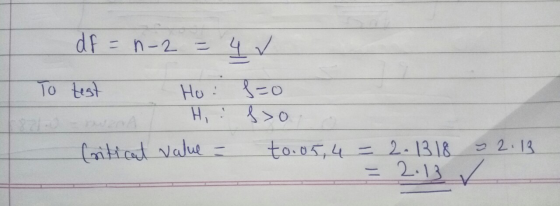 df = n-2 = 4 ✓
To test H0: ρ=0
H1: ρ>0
Critical value = t0.05,4 = 2.1318 = 2.13
= 2.13 ✓